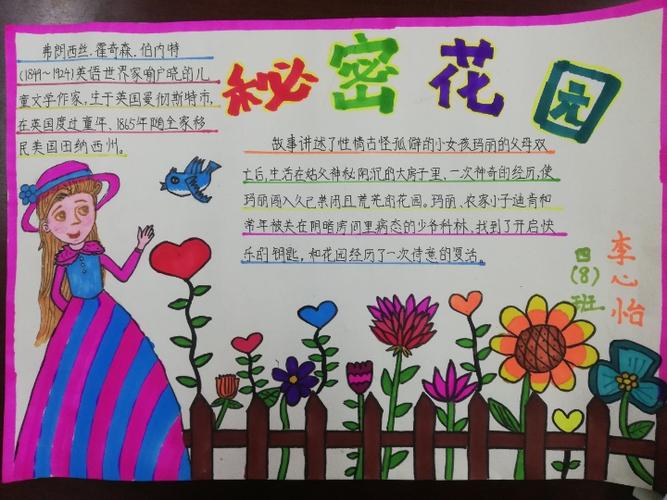 弗朗西丝.霍奇森.伯内特
(1849~1924)英语世界家喻户晓的儿
童文学作家,生于英国曼彻斯特市,
在英国度过童年、1865年随全家移
民美国田纳西州。
秘密花园
故事讲述了性情古怪孤僻的小女孩玛丽的父母双
亡后,生活在姑父神秘阴沉的大房子里,一次神奇的经历,使
玛丽闯入久已禁闭且荒芜的花园。玛丽、农家小子迪肯和
常年被关在阴暗房间里病态的少爷科林、找到了开启快
乐的钥匙,和花园经历了一次诗意的复活。
四(8)班
李心怡